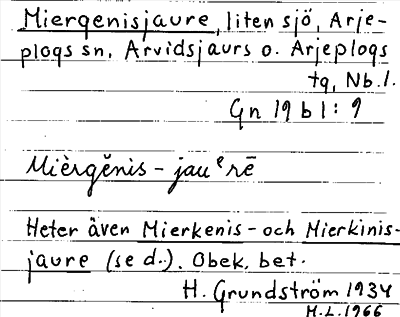 Miergenisjaure, liten sjö, Arje-
plogs sn, Arvidsjaurs o. Arjeplogs
tg, Nb.l.
Gn 19 b l : 9
Mièrgĕnis - jauᵉrē
Heter även Mierkenis- och Mierkinis-
jaure (se d:.). Obek. bet.
H. Grundström 1934
M.L. 1966